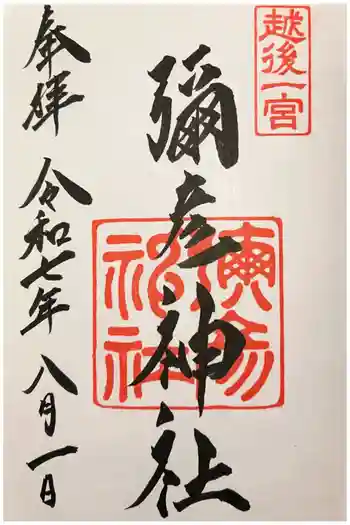 越後一宮
彌彦神社
彌彦神社
奉拝 令和七年 八月一日